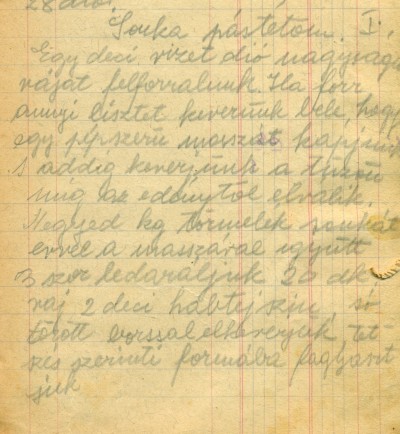 28 dió.
Sonka pástétom. I.
Egy deci vizet dió nagyságu
vaját felforralunk. Ha forr
annyi lisztet keverünk bele, hogy
egy pépszerü masszát kapjunk
s addig keverjünk a tüzön
mig az edénytöl elválik.
Negyed kg törmelék sonkát
evvel a masszával együtt
3 szor ledaráljuk 20 dk
vaj 2 deci habtejszin, só
törött borssal elkeverjük tet
szés szerinti formába fagyaszt
juk